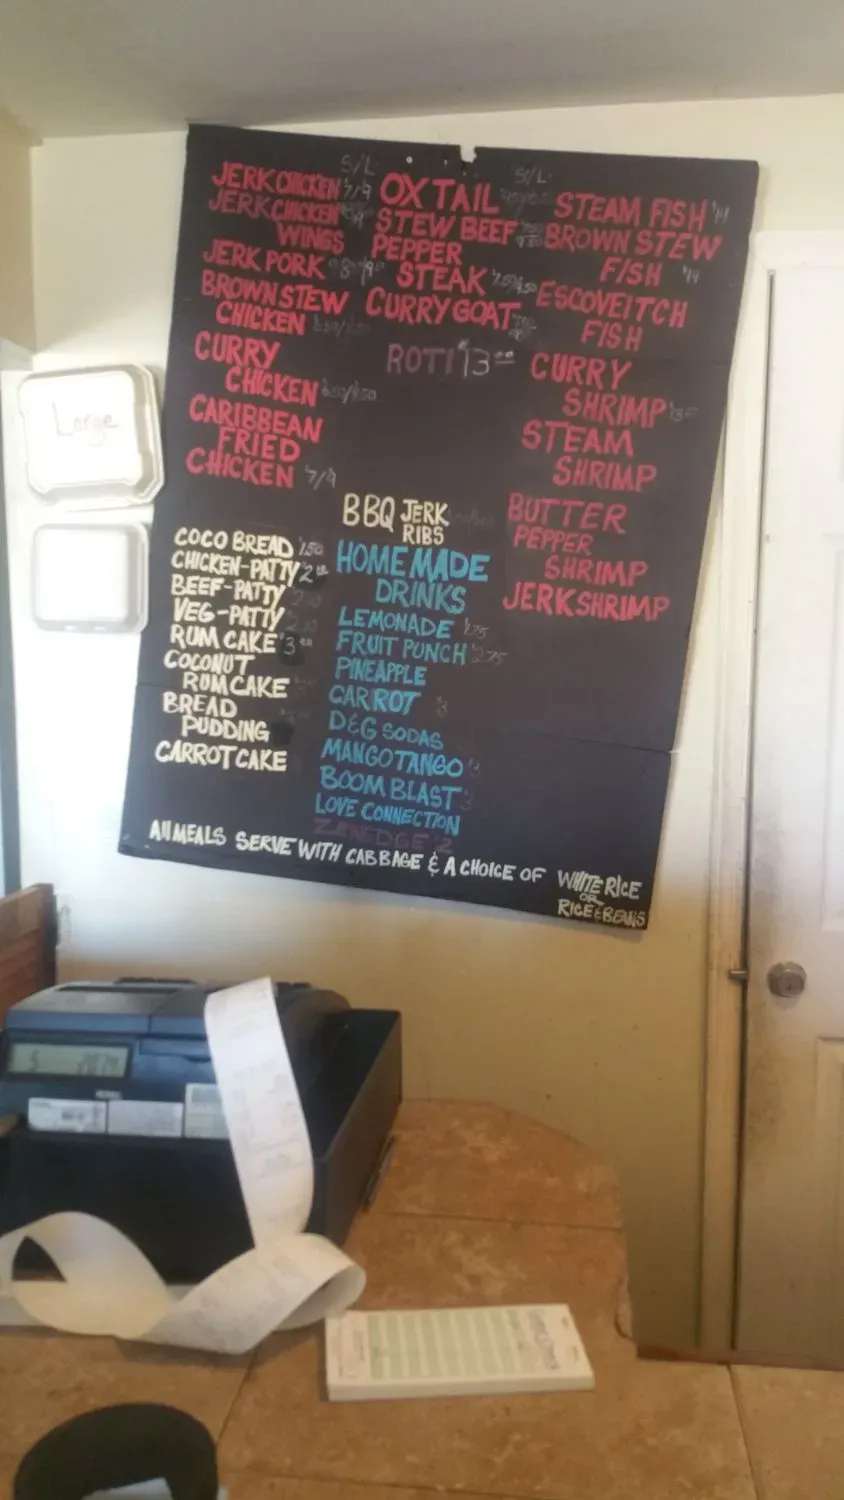 Large
S/L
JERK CHICKEN 7/9
JERK CHICKEN
WINGS
JERK PORK
BROWN STEW
CHICKEN
CURRY
CHICKEN
CARIBBEAN
FRIED
CHICKEN 7/9
S/L
OXTAIL
STEW BEEF
PEPPER
STEAK
CURRY GOAT
ROTI $13.00
STEAM FISH
BROWN STEW
FISH
ESCOVEITCH
FISH
CURRY
SHRIMP
STEAM
SHRIMP
BUTTER
PEPPER
SHRIMP
JERK SHRIMP
COCO BREAD 1.50
CHICKEN-PATTY
BEEF-PATTY
VEG-PATTY
RUM CAKE $3.00
COCONUT
RUM CAKE
BREAD
PUDDING
CARROT CAKE
BBQ JERK
RIBS
HOME MADE
DRINKS
LEMONADE
FRUIT PUNCH $2.75
PINEAPPLE
CARROT
D&G SODAS
MANGO TANGO
BOOM BLAST
LOVE CONNECTION
All MEALS SERVE WITH CABBAGE & A CHOICE OF WHITE RICE
OR
RICE & BEANS